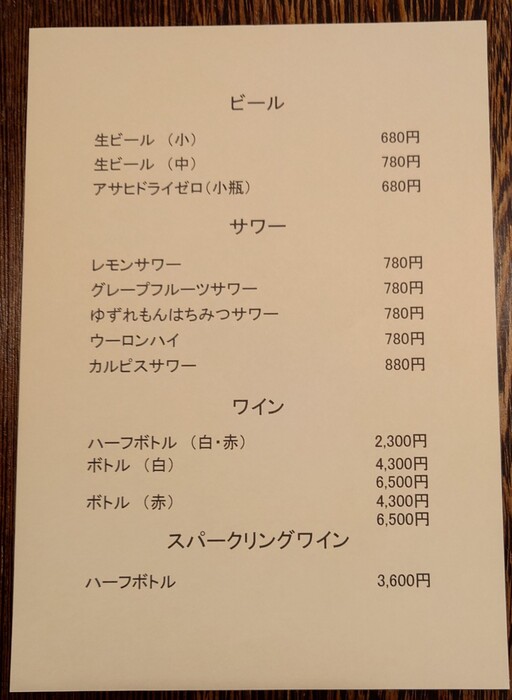 ビール
生ビール （小） 680円
生ビール （中） 780円
アサヒドライゼロ（小瓶） 680円
サワー
レモンサワー 780円
グレープフルーツサワー 780円
ゆずれもんはちみつサワー 780円
ウーロンハイ 780円
カルピスサワー 880円
ワイン
ハーフボトル （白・赤） 2,300円
ボトル （白） 4,300円
6,500円
ボトル （赤） 4,300円
6,500円
スパークリングワイン
ハーフボトル 3,600円